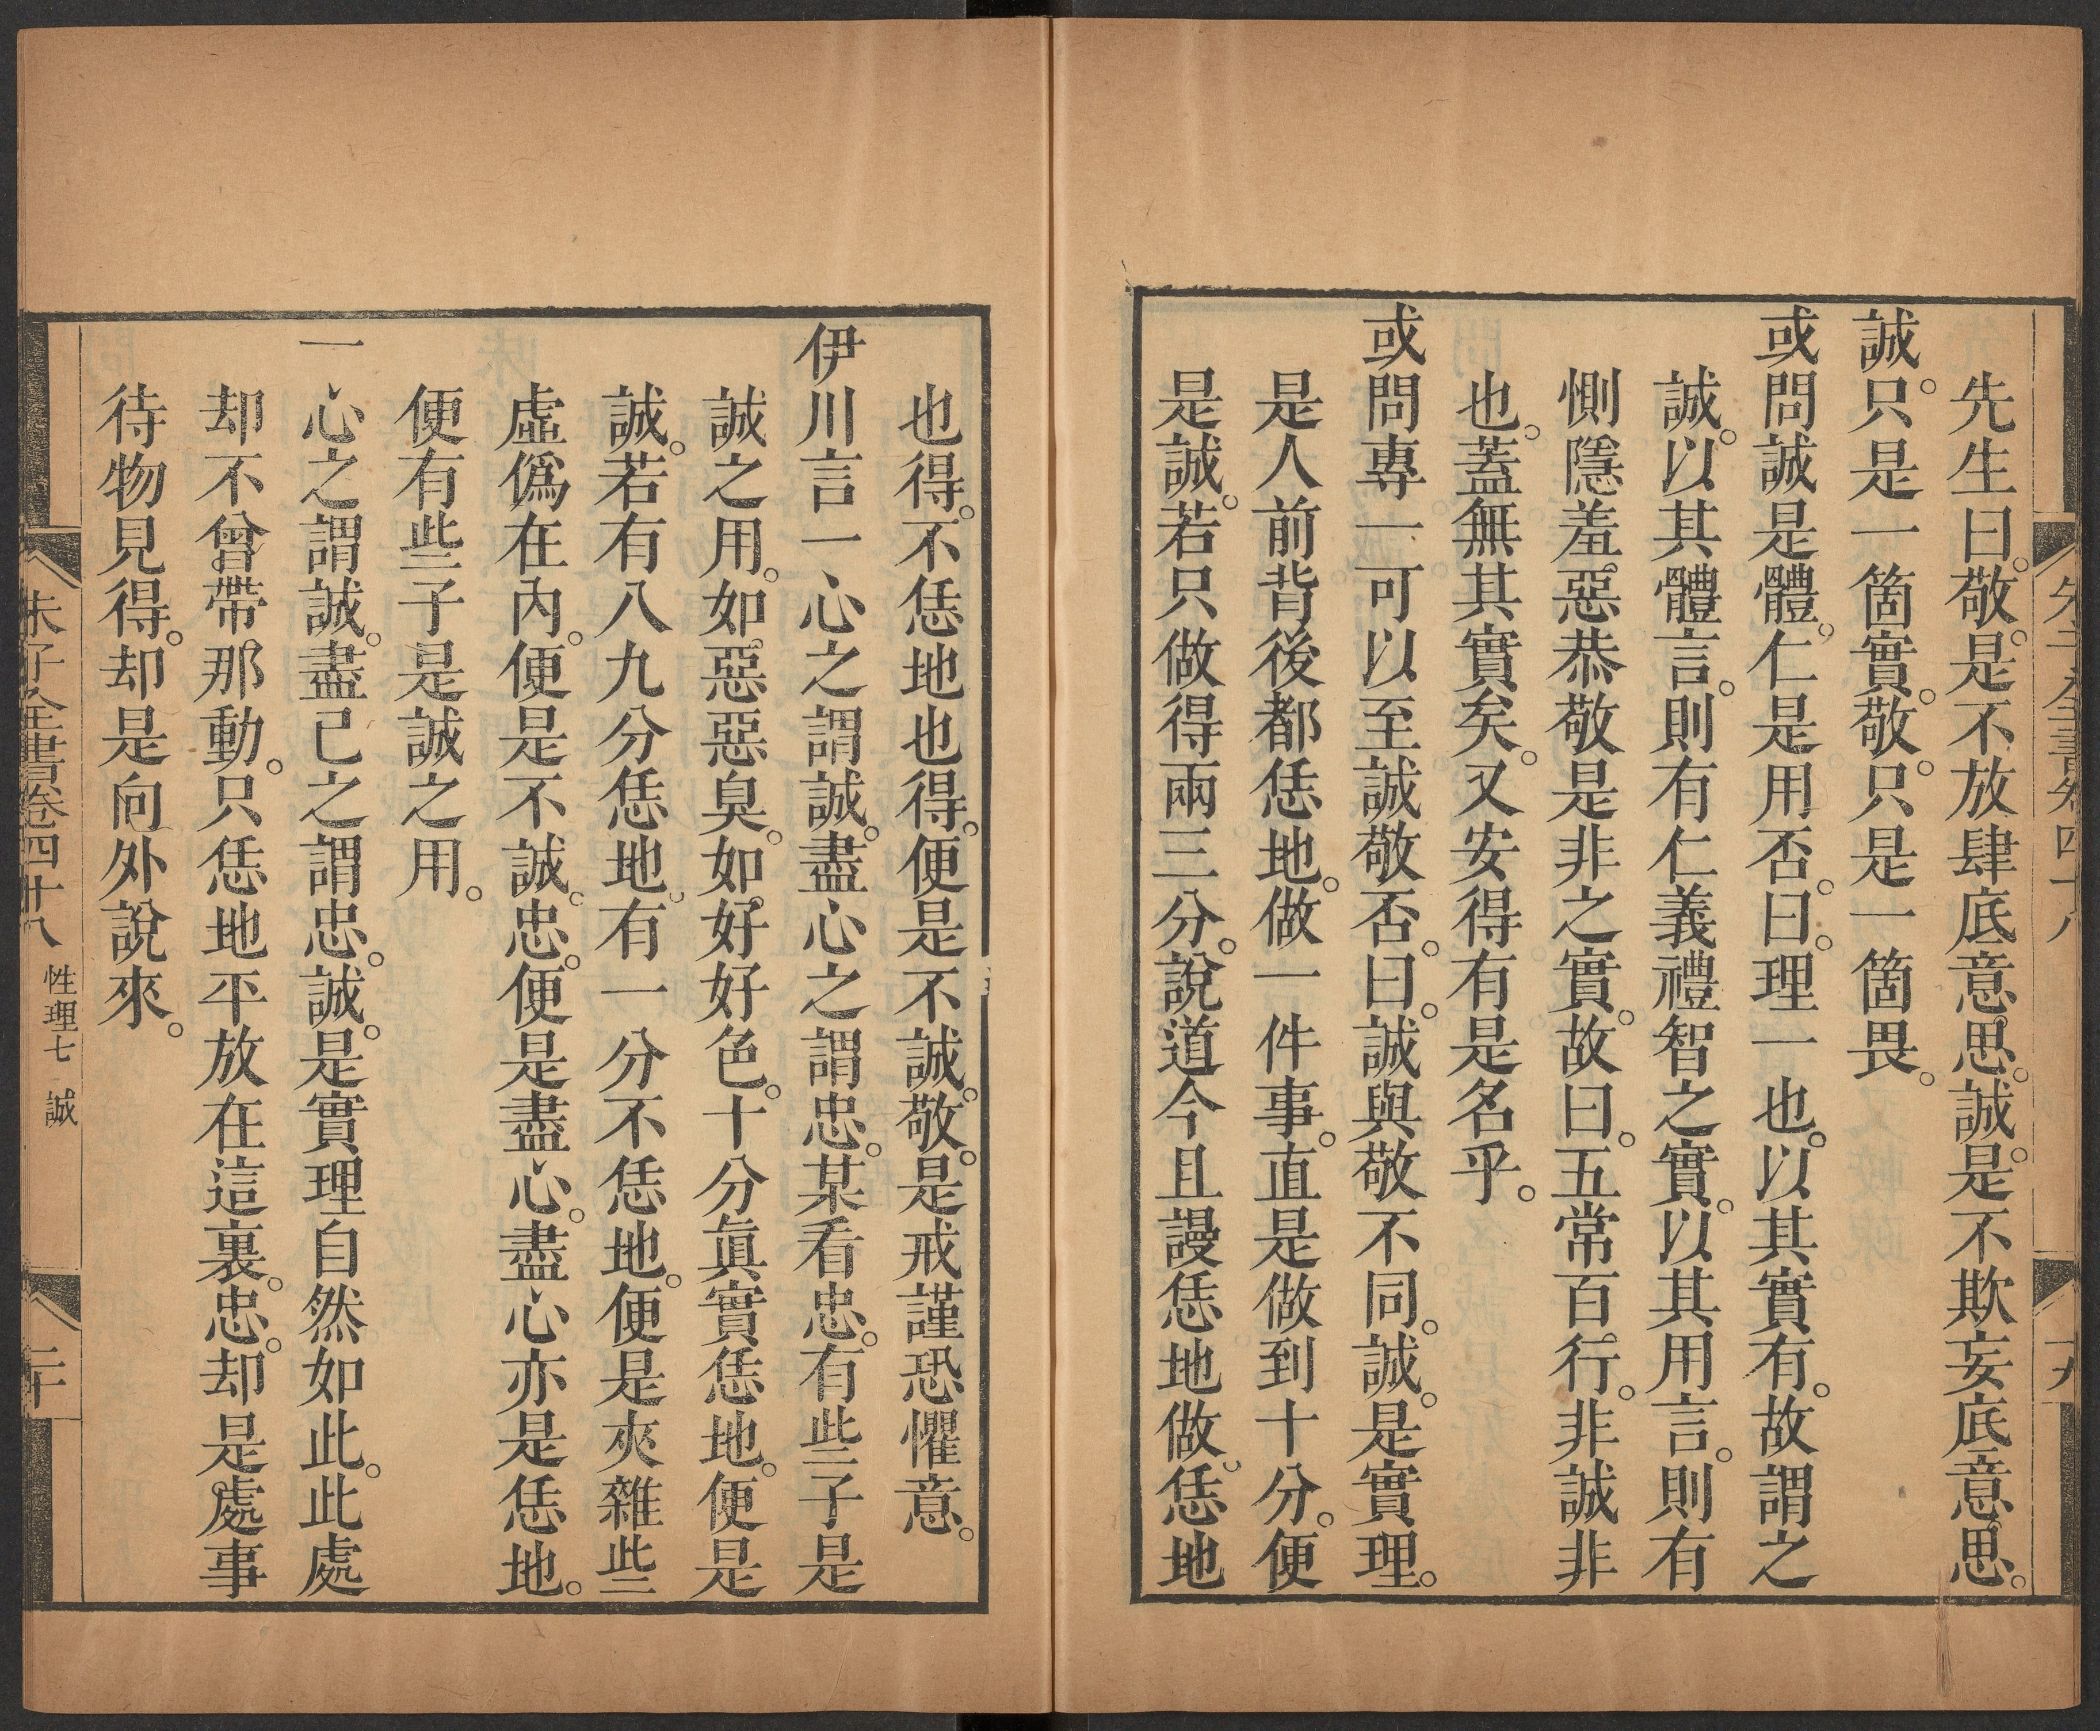 先生曰。敬。是不放肆底意思。誠。是不欺妄底意思。
誠。只是一箇實。敬。只是一箇畏。
或問誠是體。仁是用否。曰。理一也。以其實有。故謂之
誠。以其體言。則有仁義禮智之實。以其用言。則有
惻隱羞惡恭敬是非之實。故曰。五常百行。非誠非
也。蓋無其實矣。又安得有是名乎。
或問專一可以至誠敬否。曰。誠與敬不同。誠。是實理。
是人前背後都恁地。做一件事。直是做到十分。便
是誠。若只做得兩三分。說道今且謾恁地做。恁地
也得。不恁地也得。便是不誠。敬。是戒謹恐懼意。
伊川言一心之謂誠。盡心之謂忠。某看忠。有些子是
誠之用。如惡惡臭。如好好色。十分眞實恁地。便是
誠。若有八九分恁地。有一分不恁地。便是夾雜些
虛僞在內。便是不誠。忠。便是盡心。盡心亦是恁地。
便有些子是誠之用。
一心之謂誠。盡己之謂忠。誠。是實理自然如此。此處
却不曾帶那動。只恁地平放在這裏。忠。却是處事
待物見得。却是向外說來。
朱子全書卷四十八 性理七 誠 二十